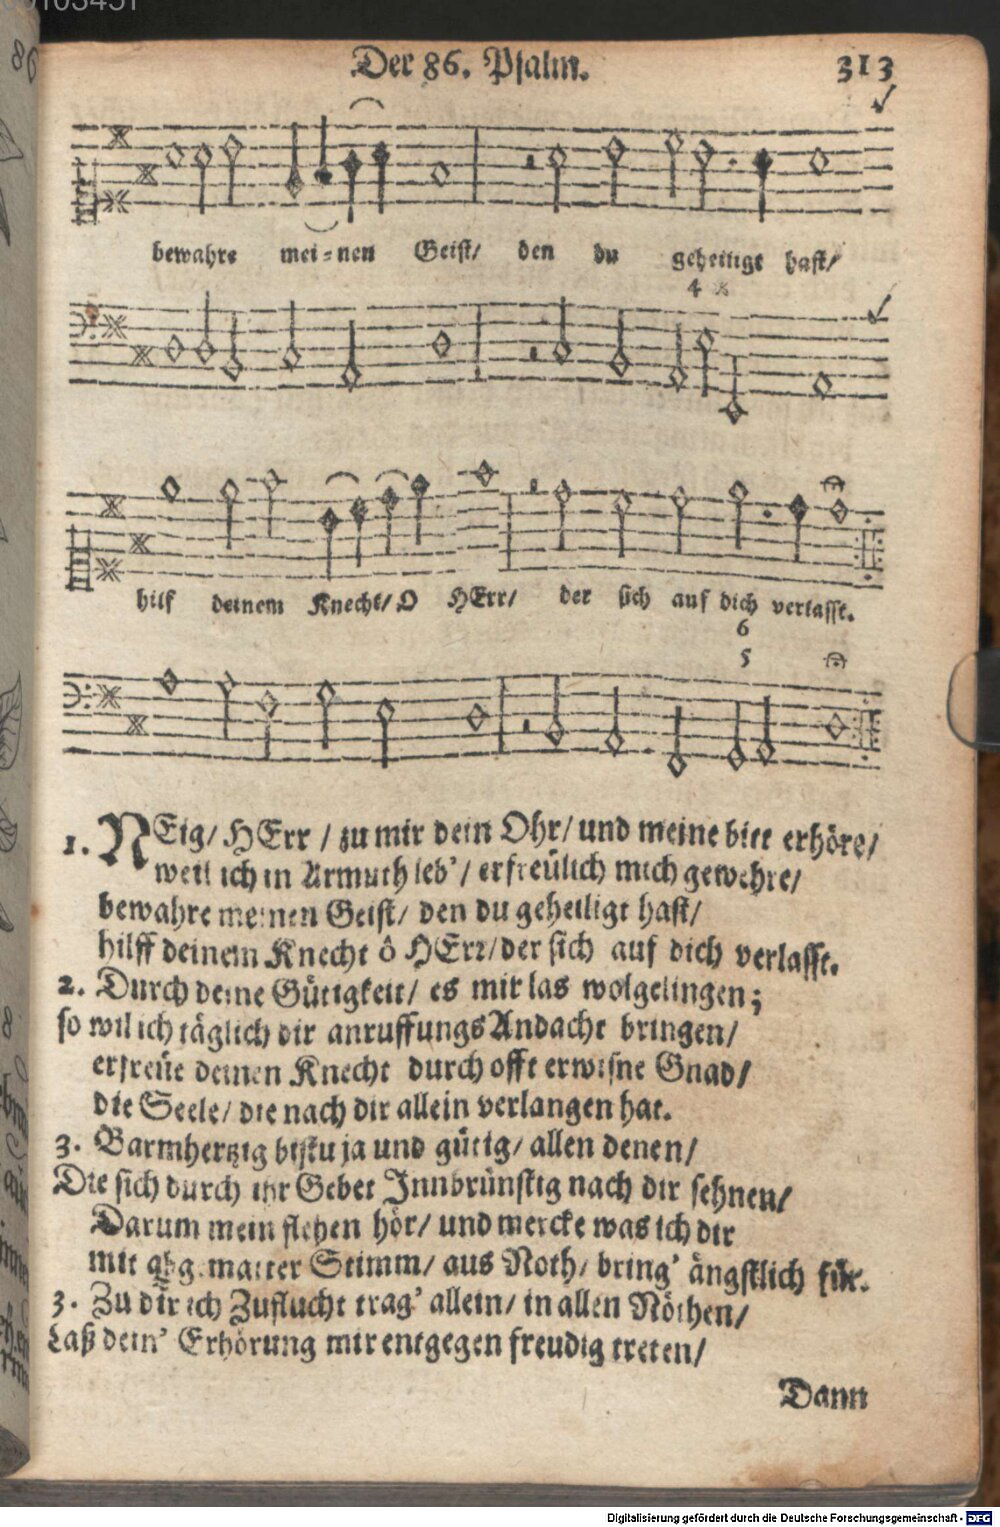 Der 86. Psalm.
313
bewahre mei-nen Geist/ den du geheiligt hast/
4
hilf deinem Knecht/ O HErr/ der sich auf dich verlasst.
6
5
1. NEig/ HErr / zu mir dein Ohr/ und meine bitt erhöre/
weil ich in Armuth leb'/ erfreülich mich gewehre/
bewahre meinen Geist/ den du geheiligt hast/
hilff deinem Knecht ô HErr/ der sich auf dich verlasst.
2. Durch deine Gütigkeit/ es mir las wolgelingen;
so wil ich täglich dir anruffungs Andacht bringen/
erfreüe deinen Knecht durch offt erwisne Gnad/
die Seele/ die nach dir allein verlangen hat.
3. Barmhertzig bistu ja und gütig/ allen denen/
Die sich durch ihr Gebet Innbrünstig nach dir sehnen/
Darum mein flehen hör/ und mercke was ich dir
mit matter Stimm/ aus Noth/ bring' ängstlich für.
3. Zu dir ich Zuflucht trag' allein/ in allen Nöthen/
Laß dein' Erhörung mir entgegen freudig treten/
Dann
Digitalisierung gefördert durch die Deutsche Forschungsgemeinschaft - DFG